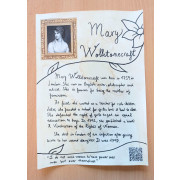 Mary
Wollstonecraft
Mary Wollstonecraft was born in 1759 in
London. She was an English writer, philosopher and
activist. She is famous for being the mother of
feminism.
At first, she worked as a teacher for rich children.
Later, she founded a school for girls but it had to close.
She defended the right of girls to get an equal
education to boys. In 1792, she published a book
A Vindication of the Rights of Woman.
She died in London of an infection after giving
birth to her second daughter. It was 1797.
"I do not wish women to have power over
men; but over themselves."